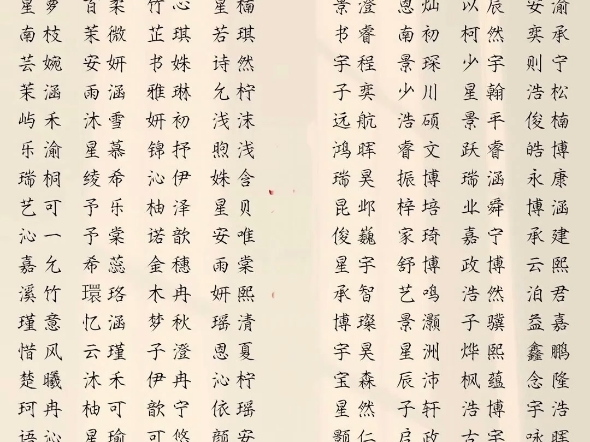 星萝 百柔 竹心 星楠 景澄 恩灿 以辰 安渝
南枝 茉微 芷琪 若琪 书睿 南初 柯然 奕承
芸婉 安妍 书姝 诗然 宇程 景琛 少宇 则宁
茉涵 雨涵 雅琳 允柠 子奕 少川 星翰 浩松
屿禾 沐雪 妍初 浅沫 远航 浩硕 景平 俊楠
乐渝 星慕 锦抒 煦浅 鸿晖 睿文 跃睿 皓博
瑞桐 绫希 沁伊 姝含 瑞昊 振博 瑞涵 永康
艺可 予乐 柚泽 星贝 昆邺 梓培 业舜 博涵
沁一 予棠 诺歆 安唯 俊巍 家琦 嘉宁 承建
嘉允 希蕊 金穗 雨棠 星宇 舒博 政博 云熙
溪竹 環珞 木冉 妍熙 承智 艺鸣 浩然 泊君
瑾意 忆涵 梦秋 瑶清 博璨 景灏 子骥 益嘉
惜风 云瑾 子澄 恩夏 宇昊 星洲 烨熙 鑫鹏
楚曦 沐禾 伊冉 沁柠 宝森 辰沛 枫蕴 念隆
珂冉 柚可 歆宁 依瑶 星然 子轩 浩博 宇浩
语涵 星瑜 可悠 颜安 颢仁 启政 古宇 咏晖